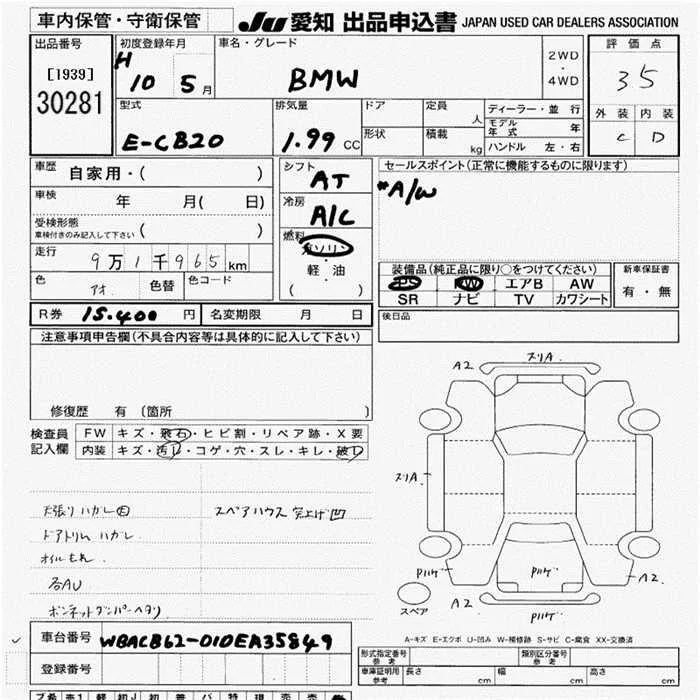 車内保管・守衛保管
JU 愛知 出品申込書 JAPAN USED CAR DEALERS ASSOCIATION
出品番号
[1939]
30281
初度登録年月
H 10 5 月
車名・グレード
BMW
2WD
・
4WD
評価点
3 5
外装 内装
C D
型式
E-CB20
排気量
1.99 CC
ドア
形状
定員 人
積載 kg
ディーラー・並行
モデル年式 年
ハンドル 左・右
車歴 自家用・( )
車検 年 月( 日)
受検形態
車検付きのみ記入して下さい ( )
走行
9万1千965km
色 アオ 色替 色コード
シフト
AT
冷房
A/C
燃料
ガソリン
・
軽・油
( )
セールスポイント(正常に機能するものに限ります)
*A/W
装備品(純正品に限り○をつけてください)
PS PW エアB AW
SR ナビ TV カワシート
新車保証書
有・無
R券 15.400 円 名変期限 月 日
後日品
注意事項申告欄(不具合内容等は具体的に記入して下さい)
修復歴 有 〔箇所 〕
検査員
記入欄
FW キズ・飛石・ヒビ割・リペア跡・X要
内装 キズ・汚れ・コゲ・穴・スレ・キレ・破れ
天張りハガレ
スペアハウス突上げ凹
ドアトリムハガレ
オイルもれ
各AU
ボンネットダンパーヘタリ
A2 スリA
スリA
Pハゲ Pハゲ A2
スペア A2 Pハゲ
A-キズ E-エクボ U-凹み W-補修跡 S-サビ C-腐食 XX-交換済
車台番号 WBACB62-010EA35849
登録番号
形式指定番号
参考
類別区分番号
参考
車庫証明用
参考
長さ cm 幅 cm 高さ cm